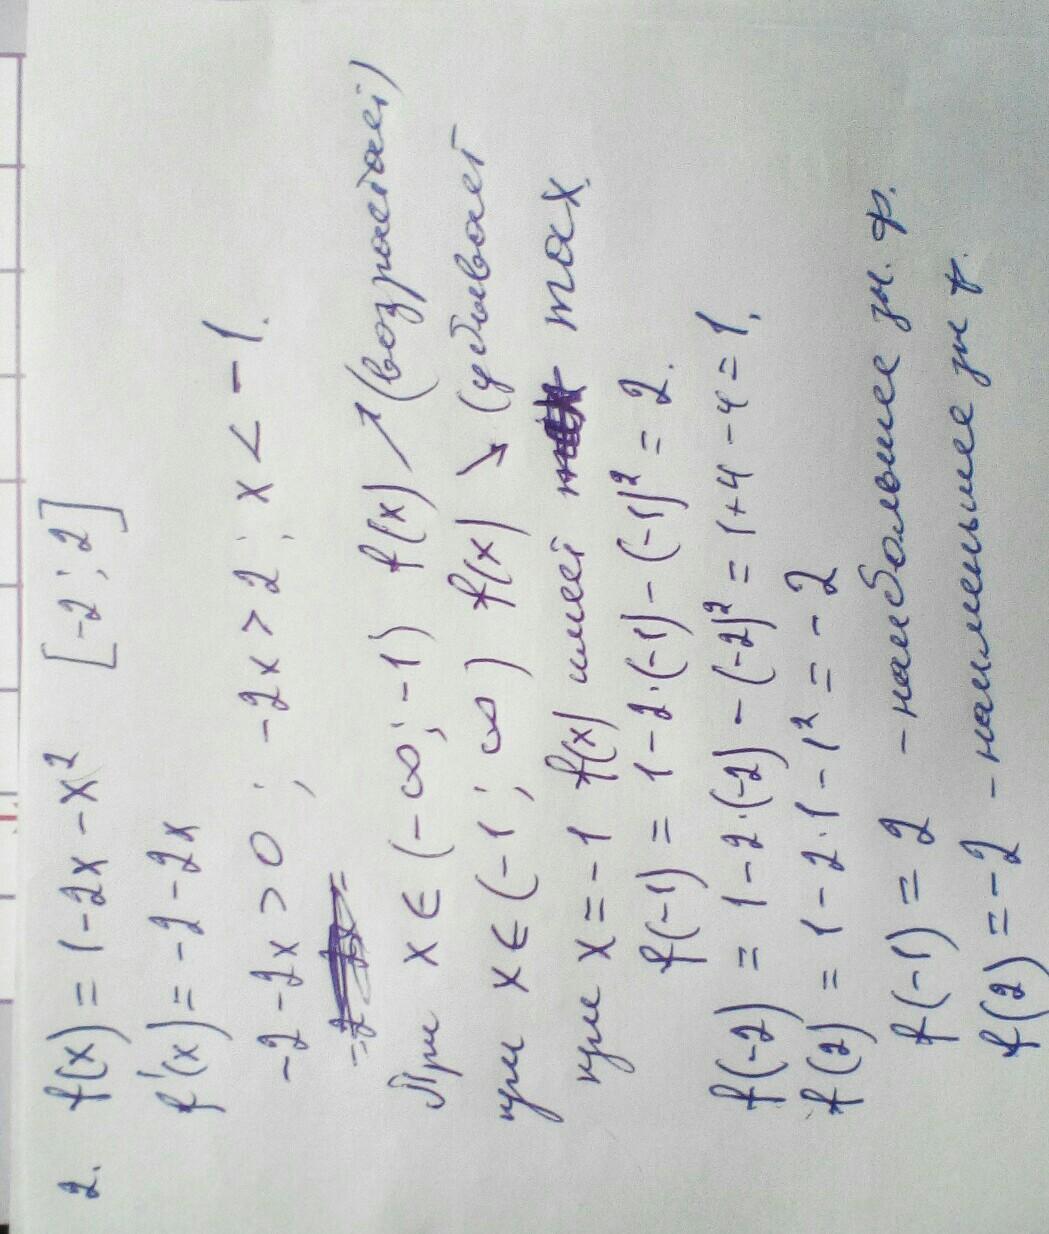 2. f(x) = 1-2x-x² [-2; 2]
f'(x) = -2-2x
-2-2x>0; -2x>2; x<-1.
При x∈(-∞; -1) f(x) ↗ (возрастает)
при x∈(-1; ∞) f(x) ↘ (убывает
при x=-1 f(x) имеет max.
f(-1) = 1-2·(-1)-(-1)² = 2.
f(-2) = 1-2·(-2)-(-2)² = 1+4-4=1.
f(2) = 1-2·1-1² = -2
f(-1) = 2 - наибольшее зн. ф.
f(2) = -2 - наименьшее зн ф.